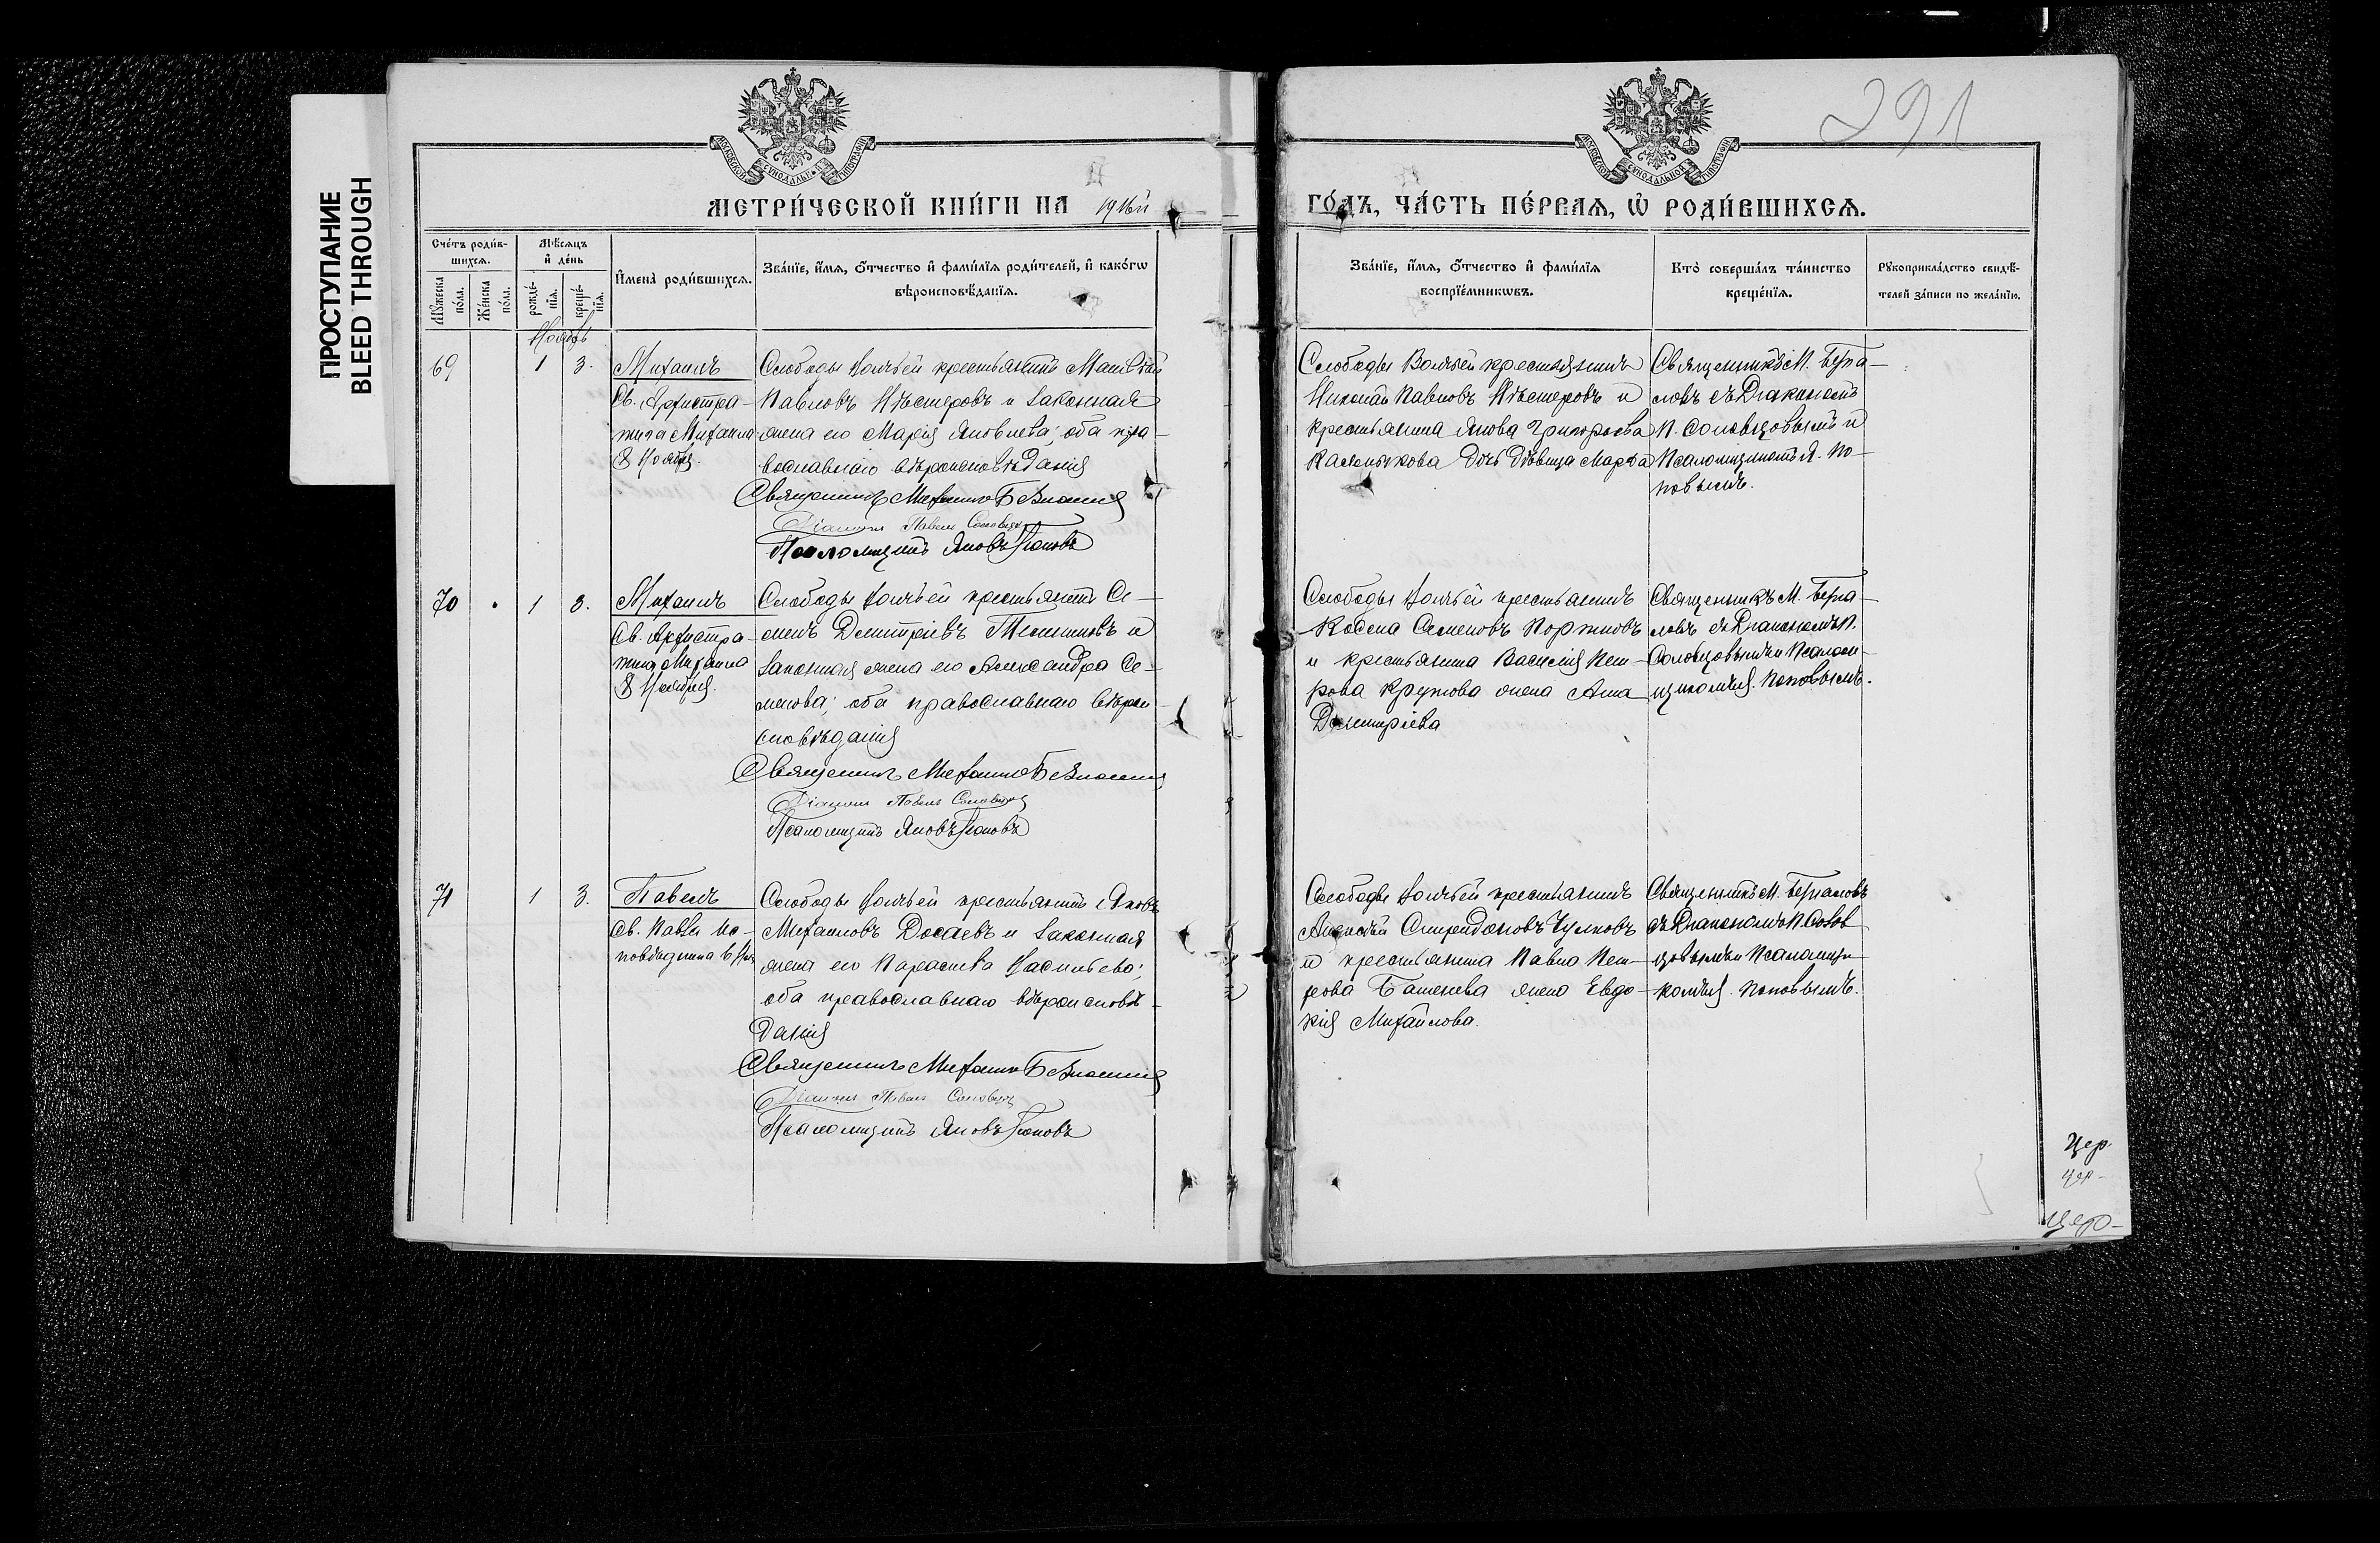 ПРОСТУПАНИЕ
BLEED THROUGH
291
МЕТРИ́ЧЕСКОЙ КНИ́ГИ НА 1916й ГО́ДЪ, ЧА́СТЬ ПЕ́РВАЯ, Ѡ҆ РОДИ́ВШИХСЯ.
Сче́тъ роди́в-
шихся.
Мꙋ́жеска по́ла.
Же́нска по́ла.
Мѣ́сяцъ и҆ де́нь
рожде́-
нїя.
креще́-
нїя.
И҆мена̀ роди́вшихся.
Зва́нїе, и҆́мя, ѻ҆́тчество и҆ фами́лїя роди́телей, и҆ како́гѡ
вѣроисповѣ́данїя.
Зва́нїе, и҆́мя, ѻ҆́тчество и҆ фами́лїя
воспрїе́мникѡвъ.
Кто̀ соверша́лъ та́инство
креще́нїя.
Рꙋкоприкла́дство свидѣ́-
телей за́писи по жела́нїю.
Ноябрь
69 1 3.
Михаилъ
Св. Архистра-
тига Михаила
8 Ноября.
Слободы Волчьей крестьянинъ
Павловъ Нѣстеровъ и законная
жена его Марія Яковлева; оба пра-
вославнаго вѣроисповѣданія
Священникъ Михаилъ
Діаконъ Павелъ Соловцовъ
Псаломщикъ Яковъ Поповъ
Слободы Волчьей крестьянинъ
Николай Павловъ Нѣстеровъ и
крестьянина Якова Григорьева
дочь дѣвица Марѳа
Священникъ М.
съ Діакономъ
П. Соловцовымъ и
Псаломщикомъ Я. По-
повымъ.
70 1 3.
Михаилъ
Св. Архистра-
тига Михаила
8 Ноября.
Слободы Волчьей крестьянинъ Се-
менъ Димитріевъ и
законная жена его Александра Се-
менова; оба православнаго вѣрои-
сповѣданія
Священникъ Михаилъ
Діаконъ Павелъ Соловцовъ
Псаломщикъ Яковъ Поповъ
Слободы Волчьей крестьянинъ
Семеновъ
и крестьянина Василія Пет-
рова жена Анна
Димитріева
Священникъ М.
съ Діакономъ П.
Соловцовымъ и Псалом-
щикомъ Я. Поповымъ.
71 1 3.
Павелъ
Св. Павла Ис-
повѣдника 6 Ноя.
Слободы Волчьей крестьянинъ Яковъ
Михаиловъ и законная
жена его Параскева Васильева;
оба православнаго вѣроисповѣ-
данія
Священникъ Михаилъ
Діаконъ Павелъ Соловцовъ
Псаломщикъ Яковъ Поповъ
Слободы Волчьей крестьянинъ
Алексѣй Спиридоновъ Чулковъ
и крестьянина Павла Пет-
рова жена Евдо-
кія Михайлова.
Священникъ М.
съ Діакономъ П. Солов-
цовымъ и Псаломщи-
комъ Я. Поповымъ.
Цер
Цер-
Церо-